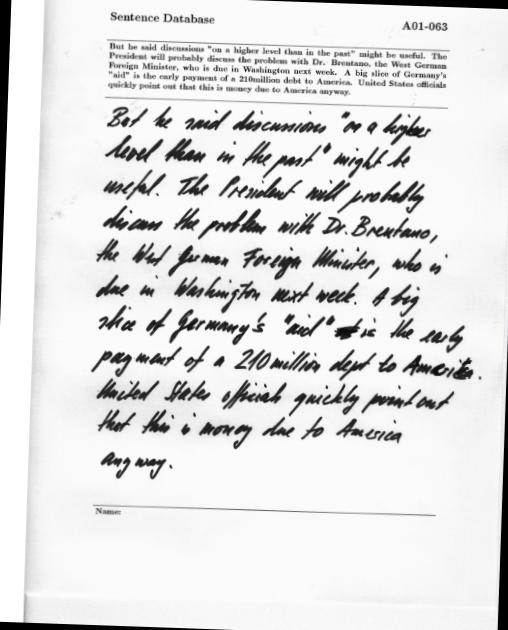 Sentence Database
A01-063
But he said discussions "on a higher level than in the past" might be useful. The
President will probably discuss the problem with Dr. Brentano, the West German
Foreign Minister, who is due in Washington next week. A big slice of Germany's
"aid" is the early payment of a 210million debt to America. United States officials
quickly point out that this is money due to America anyway.
But he said discussions "on a higher
level than in the past" might be
useful. The President will probably
discuss the problem with Dr. Brentano,
the West German Foreign Minister, who is
due in Washington next week. A big
slice of Germany's "aid" is the early
payment of a 210 million dept to America.
United States officials quickly point out
that this is money due to America
anyway.
Name: